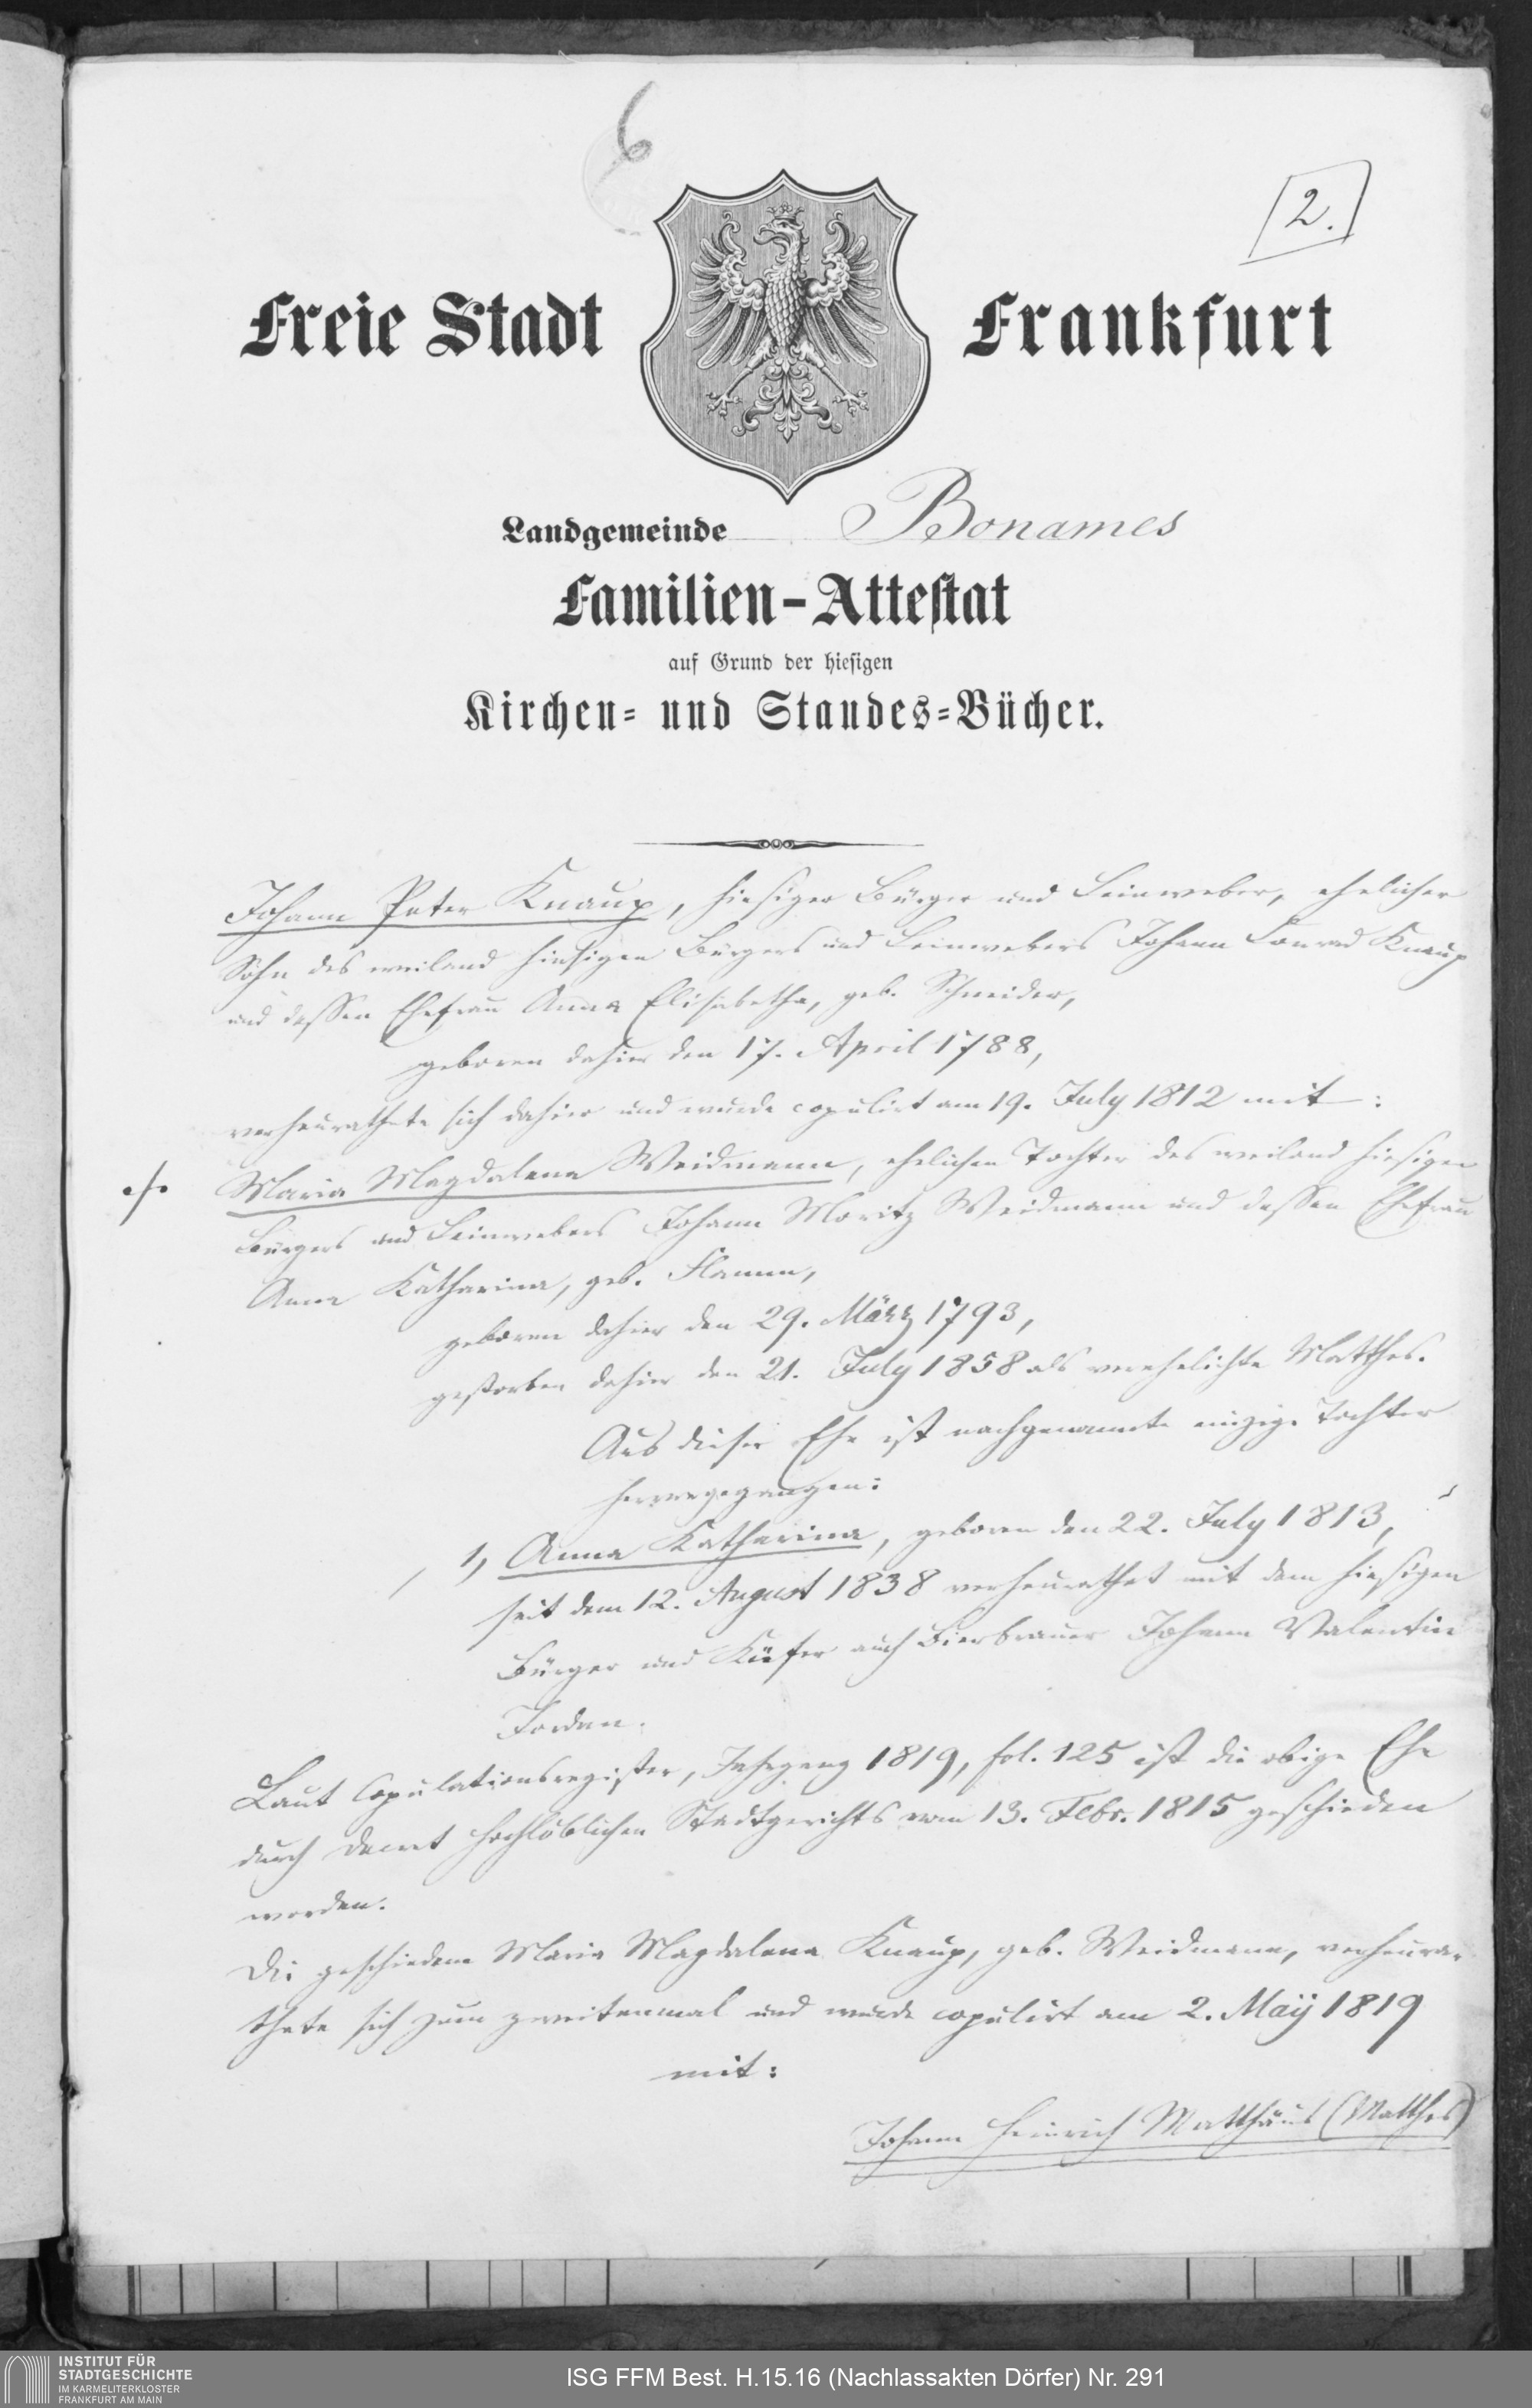 6
2.
Freie Stadt Frankfurt
Landgemeinde Bonames
Familien-Attestat
auf Grund der hiesigen
Kirchen- und Standes-Bücher.
Johann Peter Knaup, hiesiger Bürger und Leinweber, ehelicher
Sohn des weiland hiesigen Bürgers und Leinwebers Johann Conrad Knaup
und dessen Ehefrau Anna Elisabetha, geb. Schneider,
geboren dahier den 17. April 1788,
verheurathete sich dahier und wurde copulirt am 19. July 1812 mit:
Maria Magdalena Weidmann, ehelichen Tochter des weiland hiesigen
Bürgers und Leinwebers Johann Moritz Weidmann und dessen Ehefrau
Anna Katharina, geb. Flamm,
geboren dahier den 29. März 1793,
gestorben dahier den 21. July 1858 als verehelichte Matthes.
Aus dieser Ehe ist nachgenannte einzige Tochter
hervorgegangen:
1, Anna Katharina, geboren den 22. July 1813,
seit dem 12. August 1838 verheurathet mit dem hiesigen
Bürger und Küfer auch Bierbrauer Johann Valentin
Jordan.
Laut Copulationsregister, Jahrgang 1819, fol. 125 ist die obige Ehe
durch Decret hochlöblichen Stadtgerichts vom 13. Febr. 1815 geschieden
worden.
Die geschiedene Maria Magdalena Knaup, geb. Weidmann, verheura-
thete sich zum zweitenmal und wurde copulirt am 2. Maÿ 1819
mit:
Johann Heinrich Matthäus (Matthes)
INSTITUT FÜR
STADTGESCHICHTE
IM KARMELITERKLOSTER
FRANKFURT AM MAIN
ISG FFM Best. H.15.16 (Nachlassakten Dörfer) Nr. 291